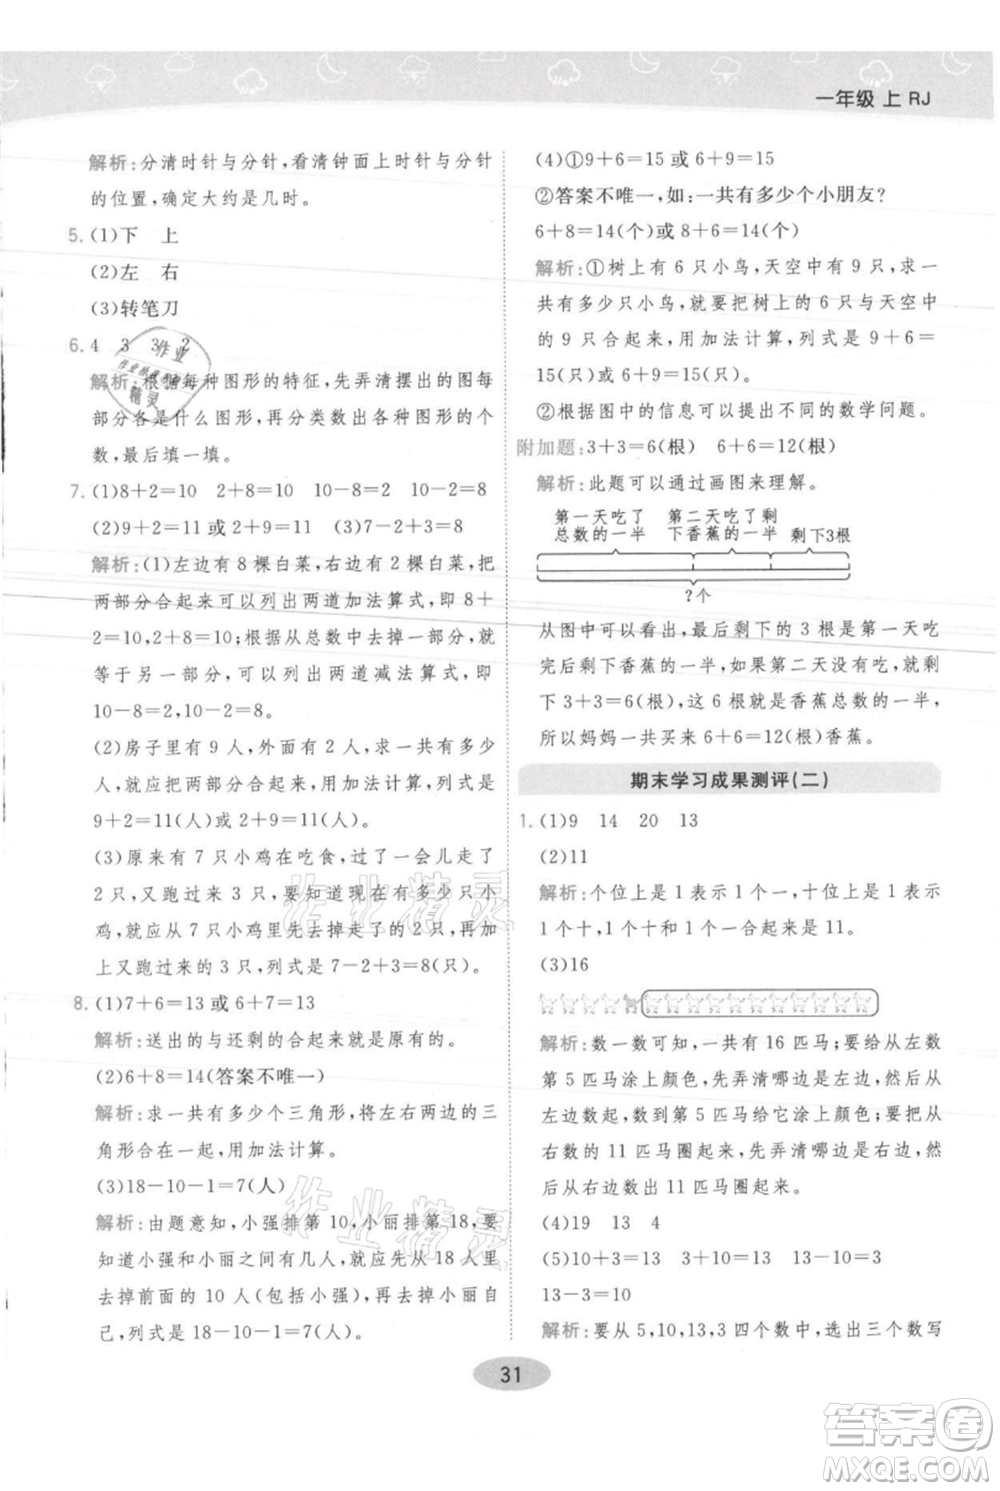 一年级 上 RJ
解析:分清时针与分针,看清钟面上时针与分针
的位置,确定大约是几时。
5. (1)下 上
(2)左 右
(3)转笔刀
6. 4 3 3 2
解析:根据每种图形的特征,先弄清摆出的图每
部分各是什么图形,再分类数出各种图形的个
数,最后填一填。
7. (1)8+2=10 2+8=10 10-2=8 10-8=2
(2)9+2=11 或 2+9=11 (3)7-2+3=8
解析:(1)左边有 8 棵白菜,右边有 2 棵白菜,把
两部分合起来可以列出两道加法算式,即 8+
2=10,2+8=10;根据从总数中去掉一部分,等
于另一部分,可以列出两道减法算式,即
10-8=2,10-2=8。
(2)房子里有 9 人,外面有 2 人,求一共有多少
人,就应把两部分合起来,用加法计算,列式是
9+2=11(人)或 2+9=11(人)。
(3)原来有 7 只小鸡在吃食,过了一会儿走了
2 只,又跑过来 3 只,要知道现在有多少只小
鸡,应从 7 只小鸡里先去掉走了的 2 只,再加
上又跑过来的 3 只,列式是 7-2+3=8(只)。
8. (1)7+6=13 或 6+7=13
解析:送出的与还剩的合起来就是原有的。
(2)6+8=14(答案不唯一)
解析:求一共有多少个三角形,将左右两边的三
角形合在一起,用加法计算。
(3)18-10-1=7(人)
解析:由题意知,小强排第 10,小丽排第 18,要
知道小强和小丽之间有几人,就应先从 18 人里
去掉前面的 10 人(包括小强),再去掉小丽自己
1 人,列式是 18-10-1=7(人)。
(4)①9+6=15 或 6+9=15
②答案不唯一,如:一共有多少个小朋友?
6+8=14(个)或 8+6=14(个)
解析:①树上有 6 只小鸟,天空中有 9 只,求一
共有多少只小鸟,就要把树上的 6 只与天空中
的 9 只合起来,用加法计算,列式是 9+6=
15(只)或 6+9=15(只)。
②根据图中的信息可以提出不同的数学问题。
附加题:3+3=6(根) 6+6=12(根)
解析:此题可以通过画图来理解。
第一天吃了 第二天吃了剩
总数的一半 下香蕉的一半 剩下3根
?个
从图中可以看出,最后剩下的 3 根是第一天吃
完后剩下香蕉的一半,如果第二天没有吃,就剩
下 3+3=6(根),这 6 根就是香蕉总数的一半,
所以妈妈一共买来 6+6=12(根)香蕉。
期末学习成果测评(二)
1. (1)9 14 20 13
(2)11
解析:个位上是 1 表示 1 个一,十位上是 1 表示
1 个十,1 个十和 1 个一合起来是 11。
(3)16
解析:数一数可知,一共有 16 匹马;要从左数
第 5 匹马涂上颜色,先弄清哪边是左边,然后从
左边数起,数到第 5 匹马给它涂上颜色;要把从
右数的 11 匹马圈起来,先弄清哪边是右边,然后从
右边数出 11 匹马圈起来。
(4)19 13 4
(5)10+3=13 3+10=13 13-10=3
13-3=10
解析:要从 5,10,13,3 四个数中,选出三个数写
31
作业精灵
作业精灵
答案圈
MXQE.COM